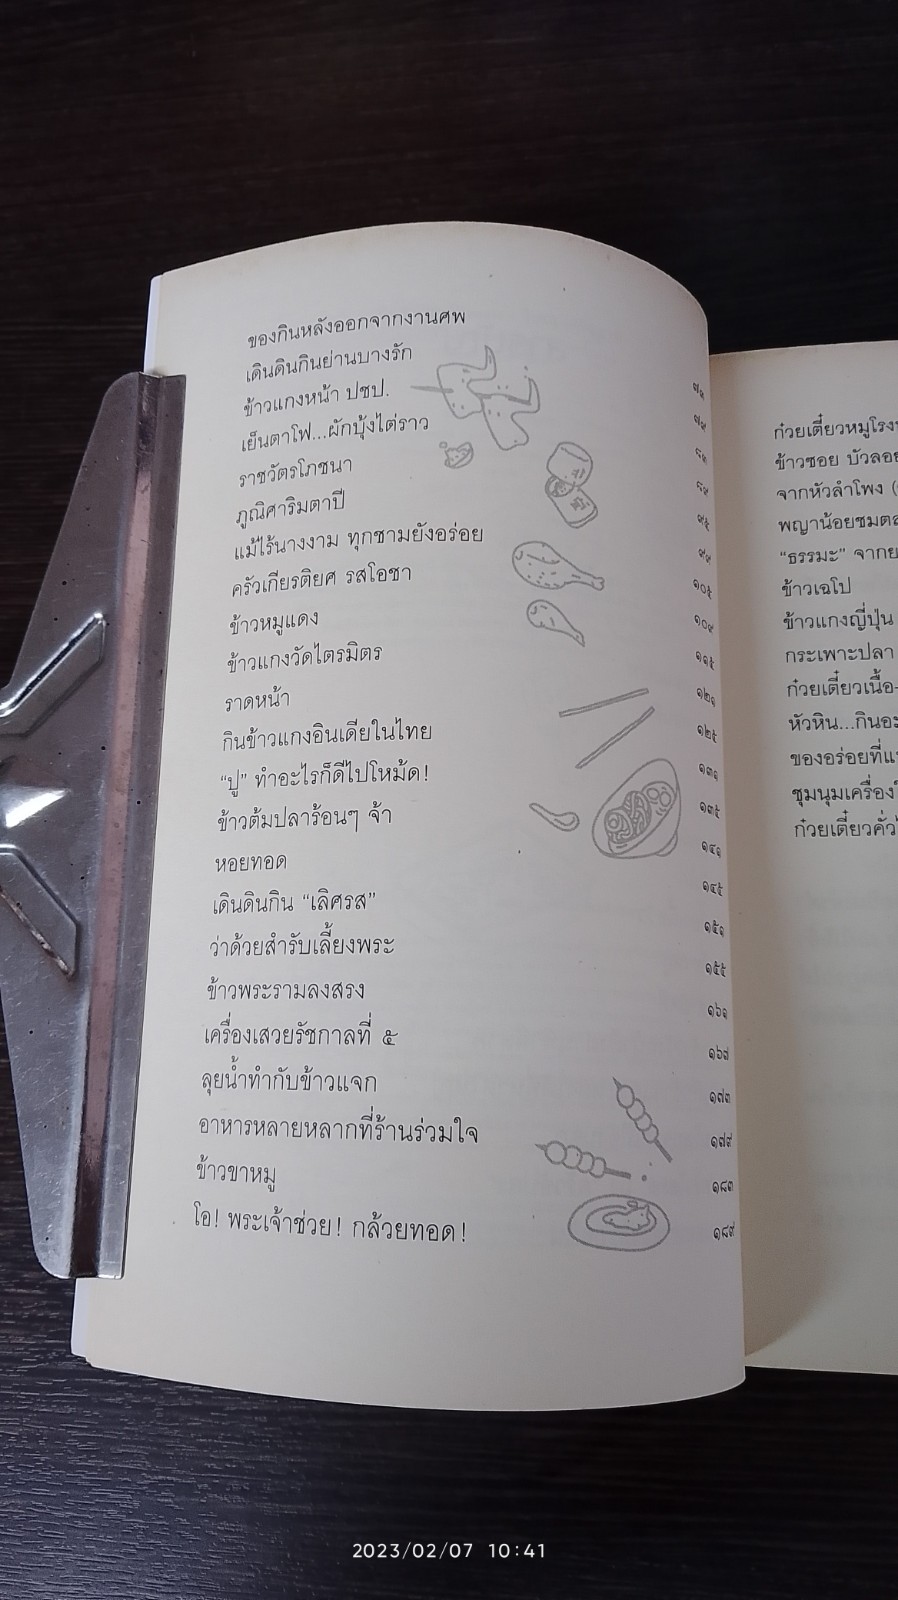 ของกินหลังออกจากงานศพ ๗๓
เดินดินกินย่านบางรัก ๗๙
ข้าวแกงหน้า ปชป. ๘๓
เย็นตาโฟ...ผักบุ้งไต่ราว ๘๙
ราชวัตรโภชนา ๙๕
ภูณิศาริมตาปี ๙๙
แม้ไร้นางงาม ทุกชามยังอร่อย ๑๐๕
ครัวเกียรติยศ รสโอชา ๑๐๙
ข้าวหมูแดง ๑๑๕
ข้าวแกงวัดไตรมิตร ๑๒๑
ราดหน้า ๑๒๕
กินข้าวแกงอินเดียในไทย ๑๓๑
“ปู” ทำอะไรก็ดีไปโหม้ด! ๑๓๕
ข้าวต้มปลาร้อนๆ จ้า ๑๔๑
หอยทอด ๑๔๕
เดินดินกิน “เลิศรส” ๑๕๑
ว่าด้วยสำรับเลี้ยงพระ ๑๕๕
ข้าวพระรามลงสรง ๑๖๑
เครื่องเสวยรัชกาลที่ ๕ ๑๖๗
ลุยน้ำทำกับข้าวแจก ๑๗๓
อาหารหลายหลากที่ร้านร่วมใจ ๑๗๙
ข้าวขาหมู ๑๘๓
โอ! พระเจ้าช่วย! กล้วยทอด! ๑๘๙
ก๋วยเตี๋ยวหมูโรง
ข้าวซอย บัวลอย
จากหัวลำโพง (
พญาน้อยชมตล
“ธรรมะ” จาก
ข้าวเฉโป
ข้าวแกงญี่ปุ่น
กระเพาะปลา
ก๋วยเตี๋ยวเนื้อ
หัวหิน...กินอะ
ของอร่อยที่
ชุมนุมเครื่อง
ก๋วยเตี๋ยวคั่ว
2023/02/07 10:41